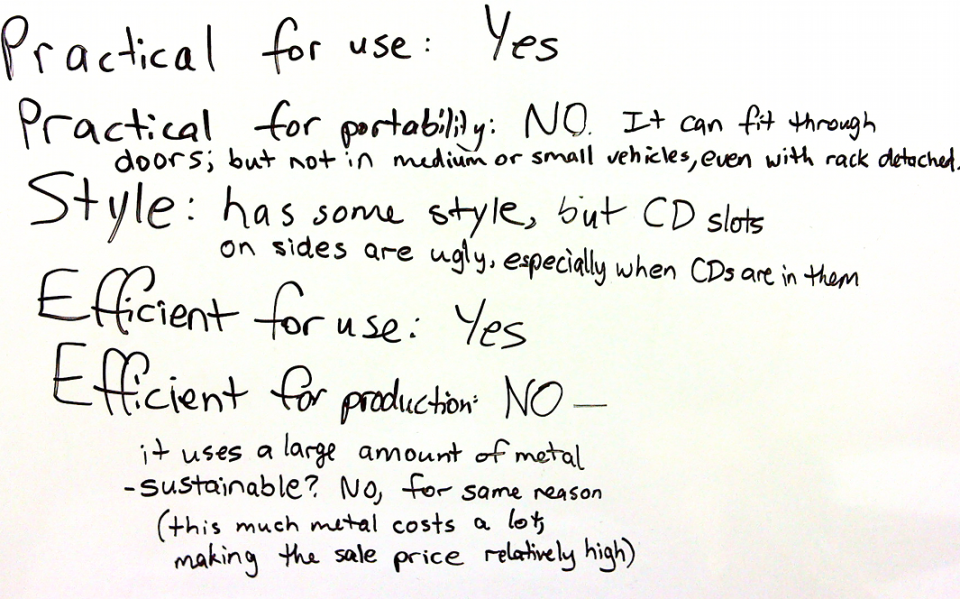 Practical for use: Yes
Practical for portability: NO. It can fit through
doors; but not in medium or small vehicles, even with rack detached.
Style: has some style, but CD slots
on sides are ugly, especially when CDs are in them
Efficient for use: Yes
Efficient for production: NO —
it uses a large amount of metal
- sustainable? No, for same reason
(this much metal costs a lot,
making the sale price relatively high)